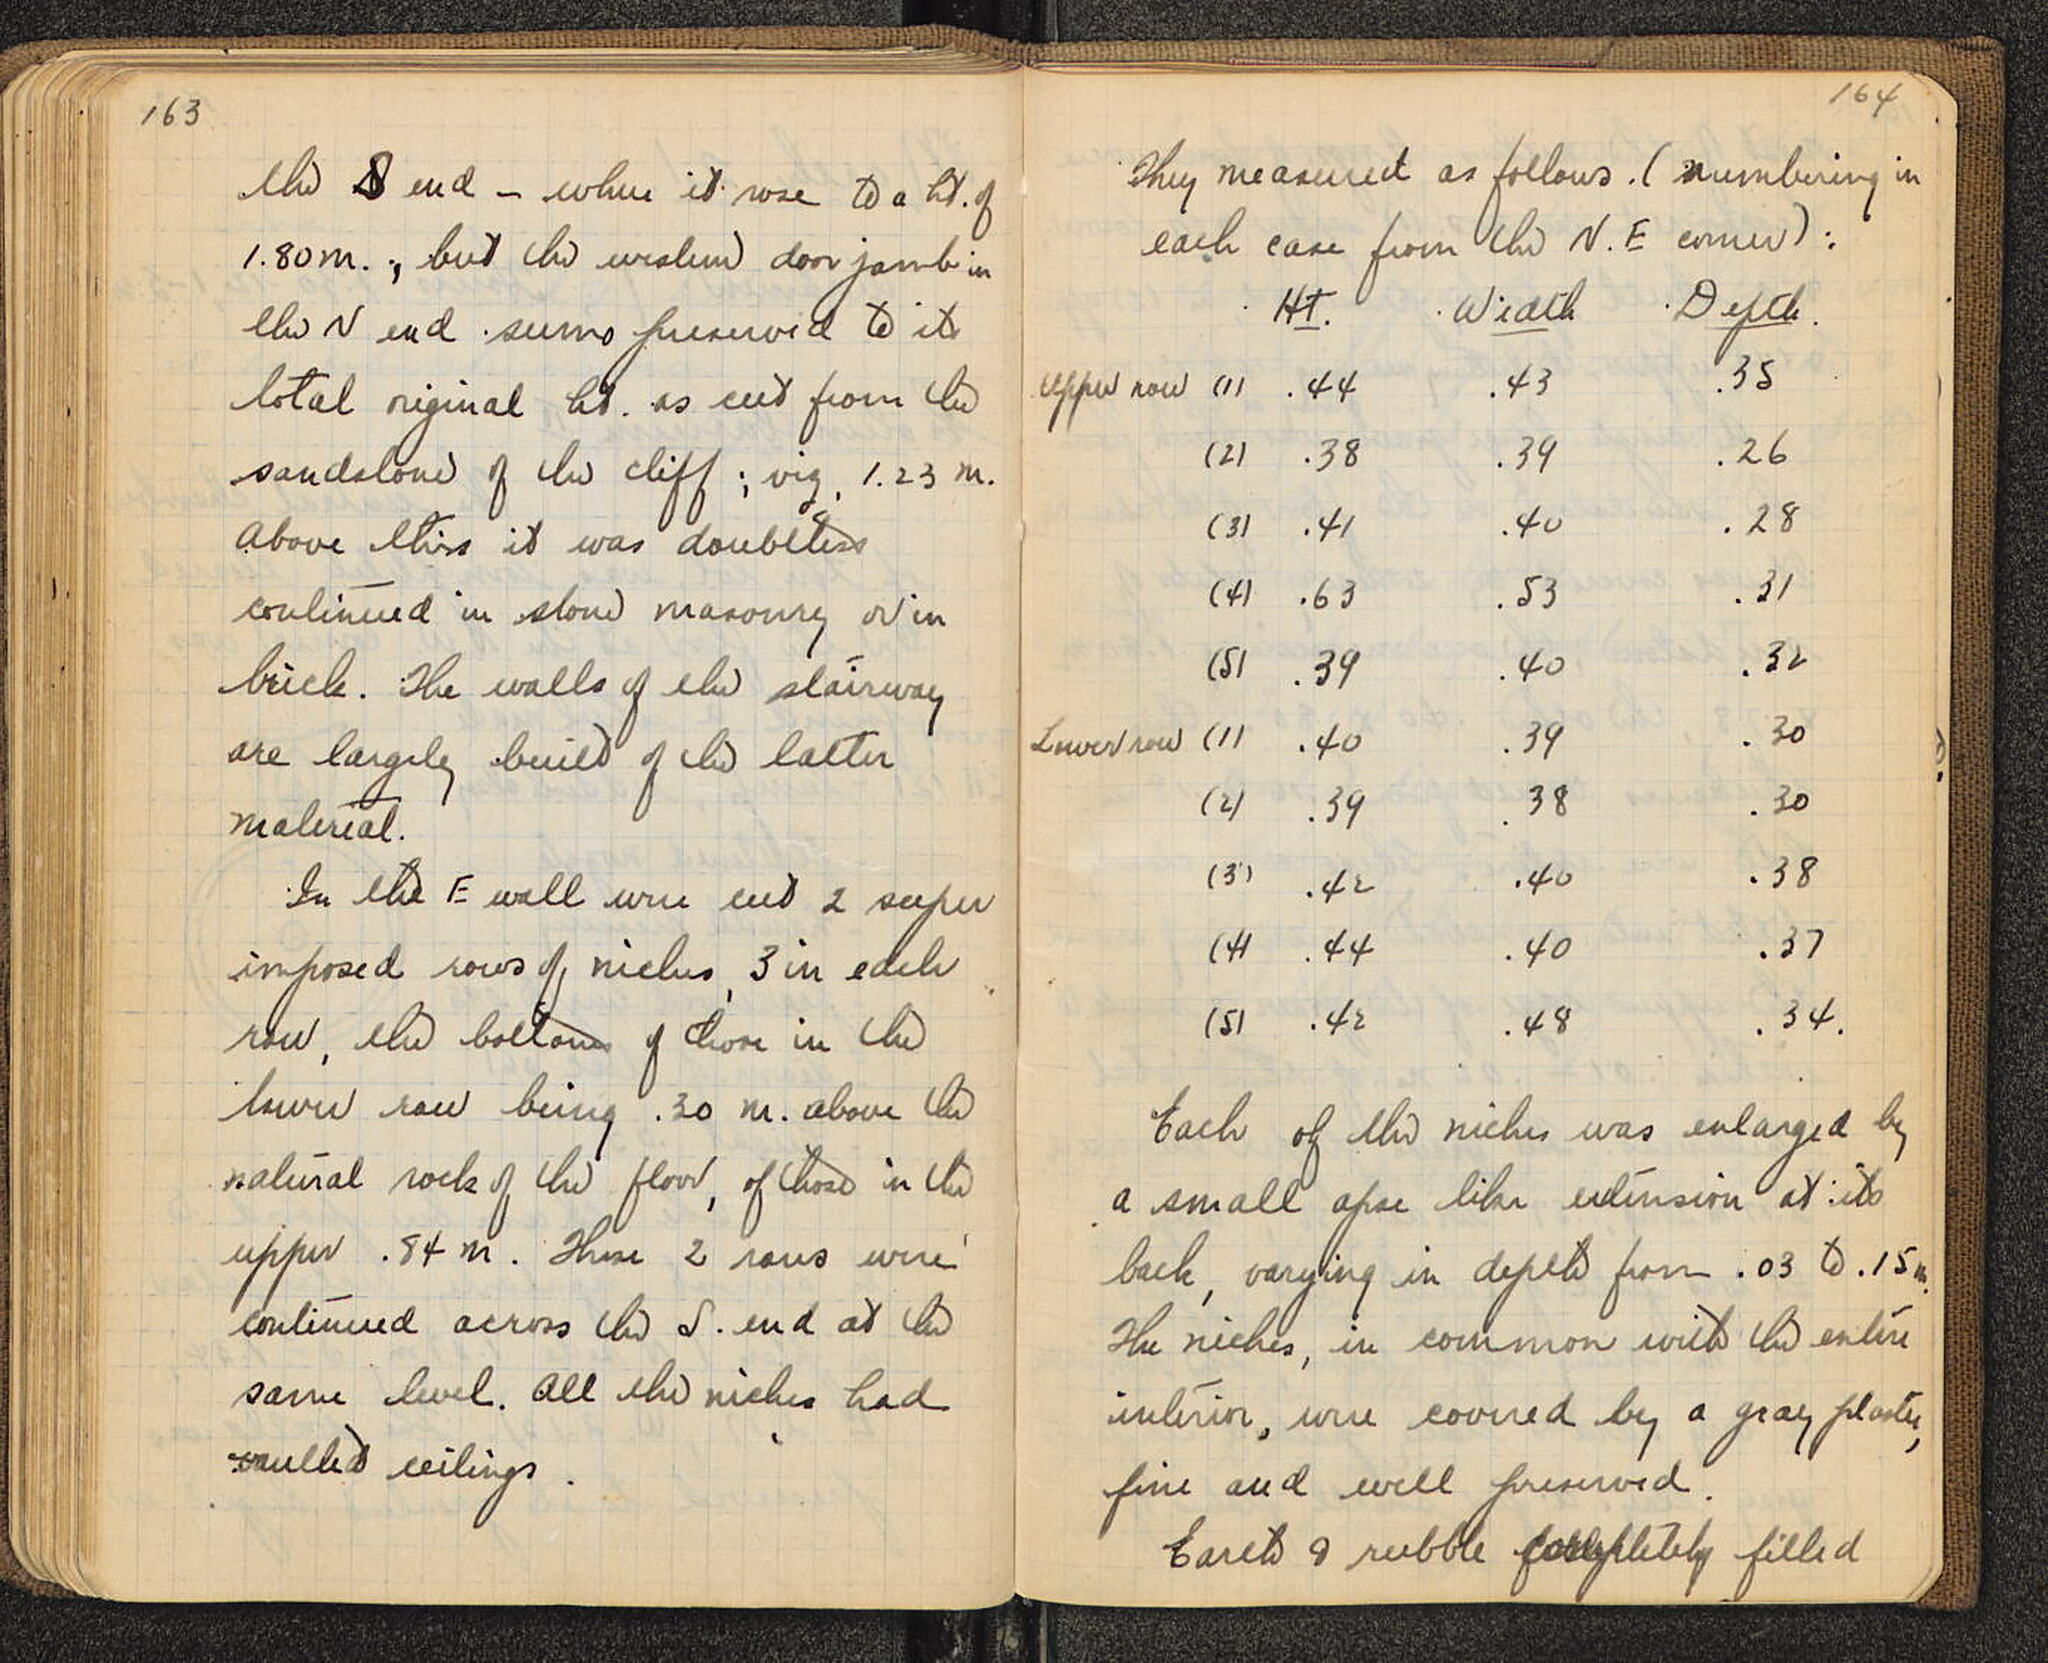 163
the S end – where it rose to a ht. of
1.80 m.; but the western door jamb in
the N end seems preserved to its
total original ht. as cut from the
sandstone of the cliff; viz, 1.23 m.
Above this it was doubtless
continued in stone masonry or in
brick. The walls of the stairway
are largely build of the latter
material.
In the E wall were cut 2 super
imposed rows of niches, 3 in each
row, the bottoms of those in the
lower row being .30 m. above the
natural rock of the floor, of those in the
upper .84 m. These 2 rows were
continued across the S. end at the
same level. All the niches had
vaulted ceilings.
164
They measured as follows. (numbering in
each case from the N. E corner):
Ht. Width Depth.
Upper row (1) .44 .43 .35
(2) .38 .39 .26
(3) .41 .40 .28
(4) .63 .53 .31
(5) .39 .40 .32
Lower row (1) .40 .39 .30
(2) .39 .38 .30
(3) .42 .40 .38
(4) .44 .40 .37
(5) .42 .48 .34.
Each of the niches was enlarged by
a small apse like extension at its
back, varying in depth from .03 to .15 m.
The niches, in common with the entire
interior, were covered by a gray plaster,
fine and well preserved.
Earth & rubble completely filled